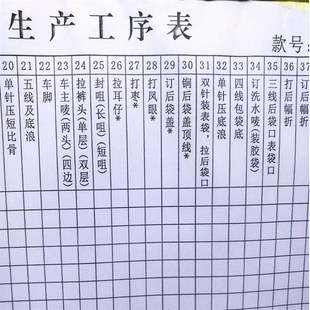 生产工序表
款号:
20 21 22 23 24 25 26 27 28 29 30 31 32 33 34 35 36 37
单针压短比骨
五线及底浪
车脚
车主唛(两头)(四边)
拉裤头(单层)(双层)
封咀(长咀)(短咀)
拉耳仔*
打枣*
打凤眼*
订后袋盖*
锏后袋盖顶线*
双针装表袋,拉后袋口
单针压底浪
四线包袋底
订洗水唛(装胶袋)
三线后袋口表袋口
打后幅折
订后幅